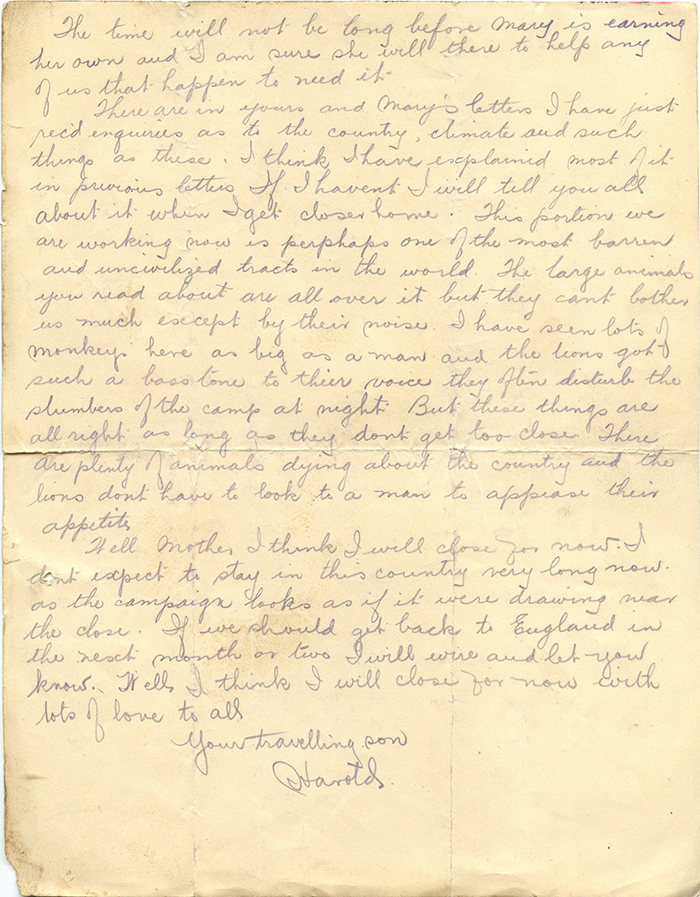 The time will not be long before Mary is earning
her own and I am sure she will there to help any
of us that happen to need it
There are in yours and Mary's letters I have just
rec'd enquiries as to the country, climate and such
things as these. I think I have explained most of it
in previous letters If I havent I will tell you all
about it when I get closer home. This portion we
are working now is perphaps one of the most barren
and uncivilized tracts in the world. The large animals
you read about are all over it but they cant bother
us much except by their noise. I have seen lots of
monkeys here as big as a man and the lions got
such a bass tone to thier voice they often disturb the
slumbers of the camp at night But these things are
all right as long as they dont get too close There
are plenty of animals dying about the country and the
lions dont have to look to a man to appease their
appetites
Well Mother I think I will close for now. I
dont expect to stay in this country very long now.
as the campaign looks as if it were drawing near
the close. If we should get back to England in
the next month or two I will wire and let you
know. Well I think I will close for now with
lots of love to all
Your travelling son
Harold.